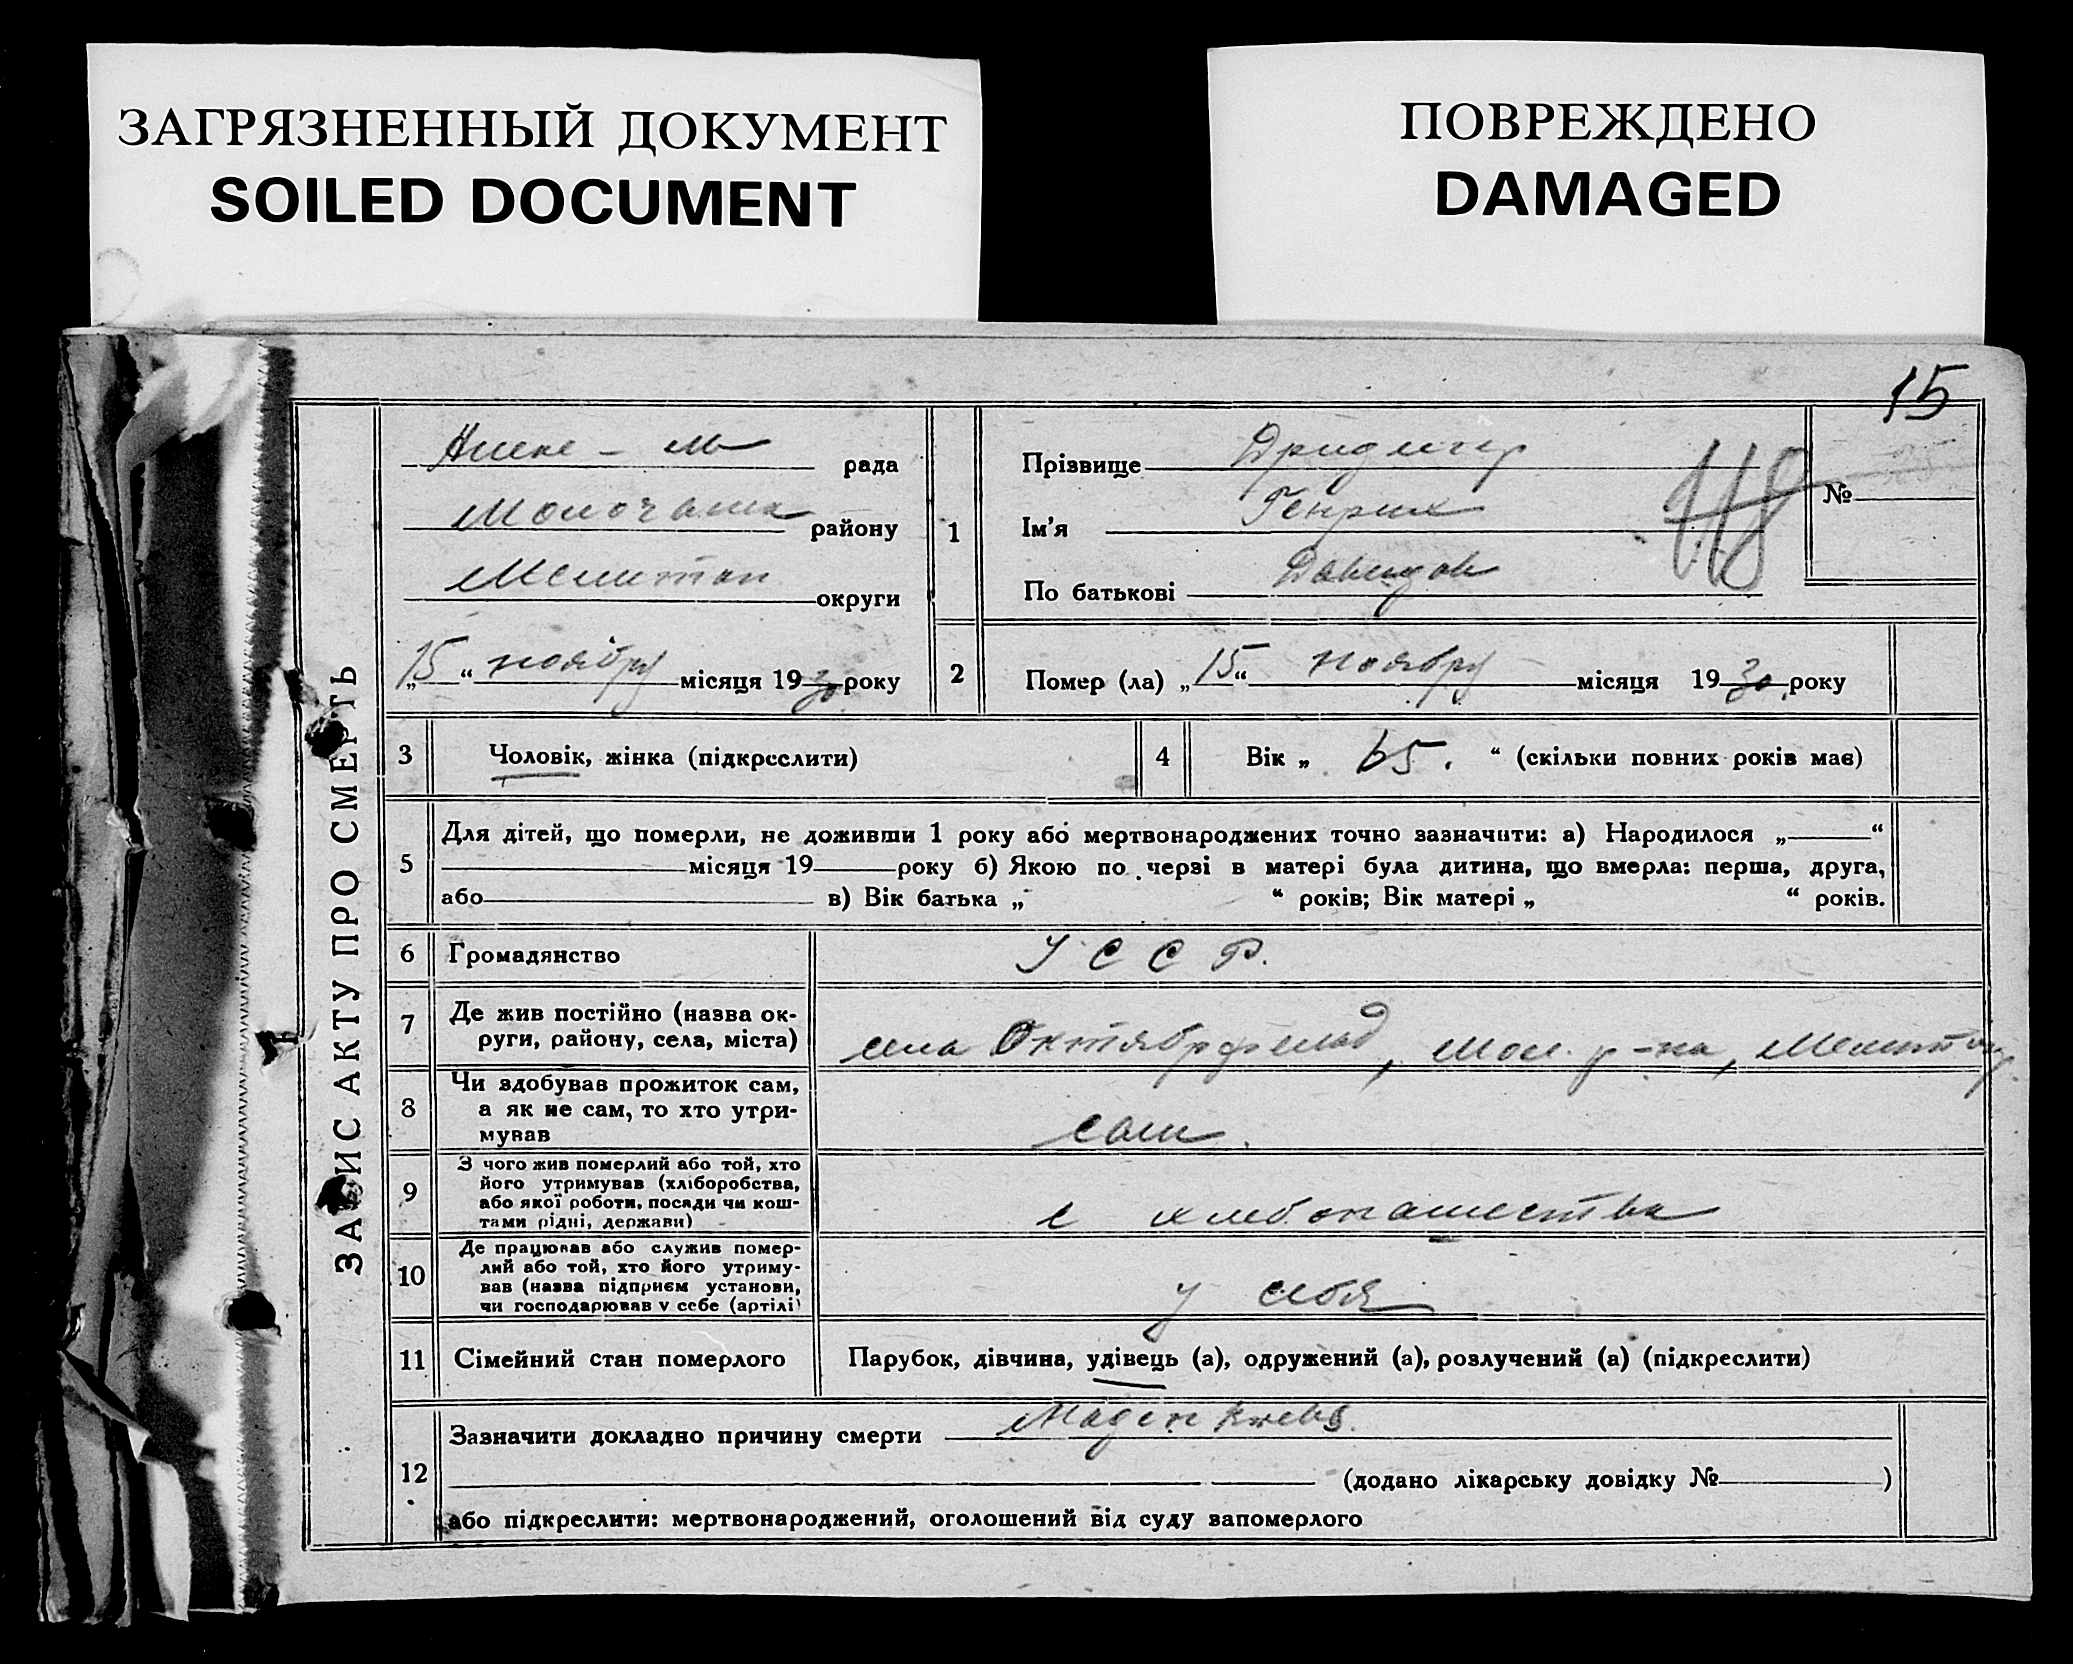 ЗАГРЯЗНЕННЫЙ ДОКУМЕНТ
SOILED DOCUMENT
ПОВРЕЖДЕНО
DAMAGED
15
ЗАПИС АКТУ ПРО СМЕРТЬ
рада
Молочанск району
Мелитоп округи
„15“ ноября місяця 1930 року
1
Прізвище Дридигер
Ім'я Генрих
По батькові Давидов
118
№
2
Помер (ла) „15“ ноября місяця 1930 року
3 Чоловік, жінка (підкреслити)
4 Вік „ 65. “ (скільки повних років має)
5
Для дітей, що померли, не доживши 1 року або мертвонароджених точно зазначити: а) Народилося „ “
місяця 19 року б) Якою по черзі в матері була дитина, що вмерла: перша, друга,
або в) Вік батька „ “ років; Вік матері „ “ років.
6 Громадянство У С С Р.
7 Де жив постійно (назва ок-
руги, району, села, міста)
села Октябрфельд, Мол. р-на, Мелитоп
8 Чи здобував прожиток сам,
а як не сам, то хто утри-
мував
сам.
9 З чого жив померлий або той, хто
його утримував (хліборобства,
або якої роботи, посади чи кош-
тами рідні, держави)
с хлебопашества
10 Де працював або служив помер-
лий або той, хто його утриму-
вав (назва підприєм установи,
чи господарював у себе (артілі)
у себя
11 Сімейний стан померлого Парубок, дівчина, удівець (а), одружений (а), розлучений (а) (підкреслити)
12
Зазначити докладно причину смерти Magen krebs.
(додано лікарську довідку № )
або підкреслити: мертвонароджений, оголошений від суду запомерлого